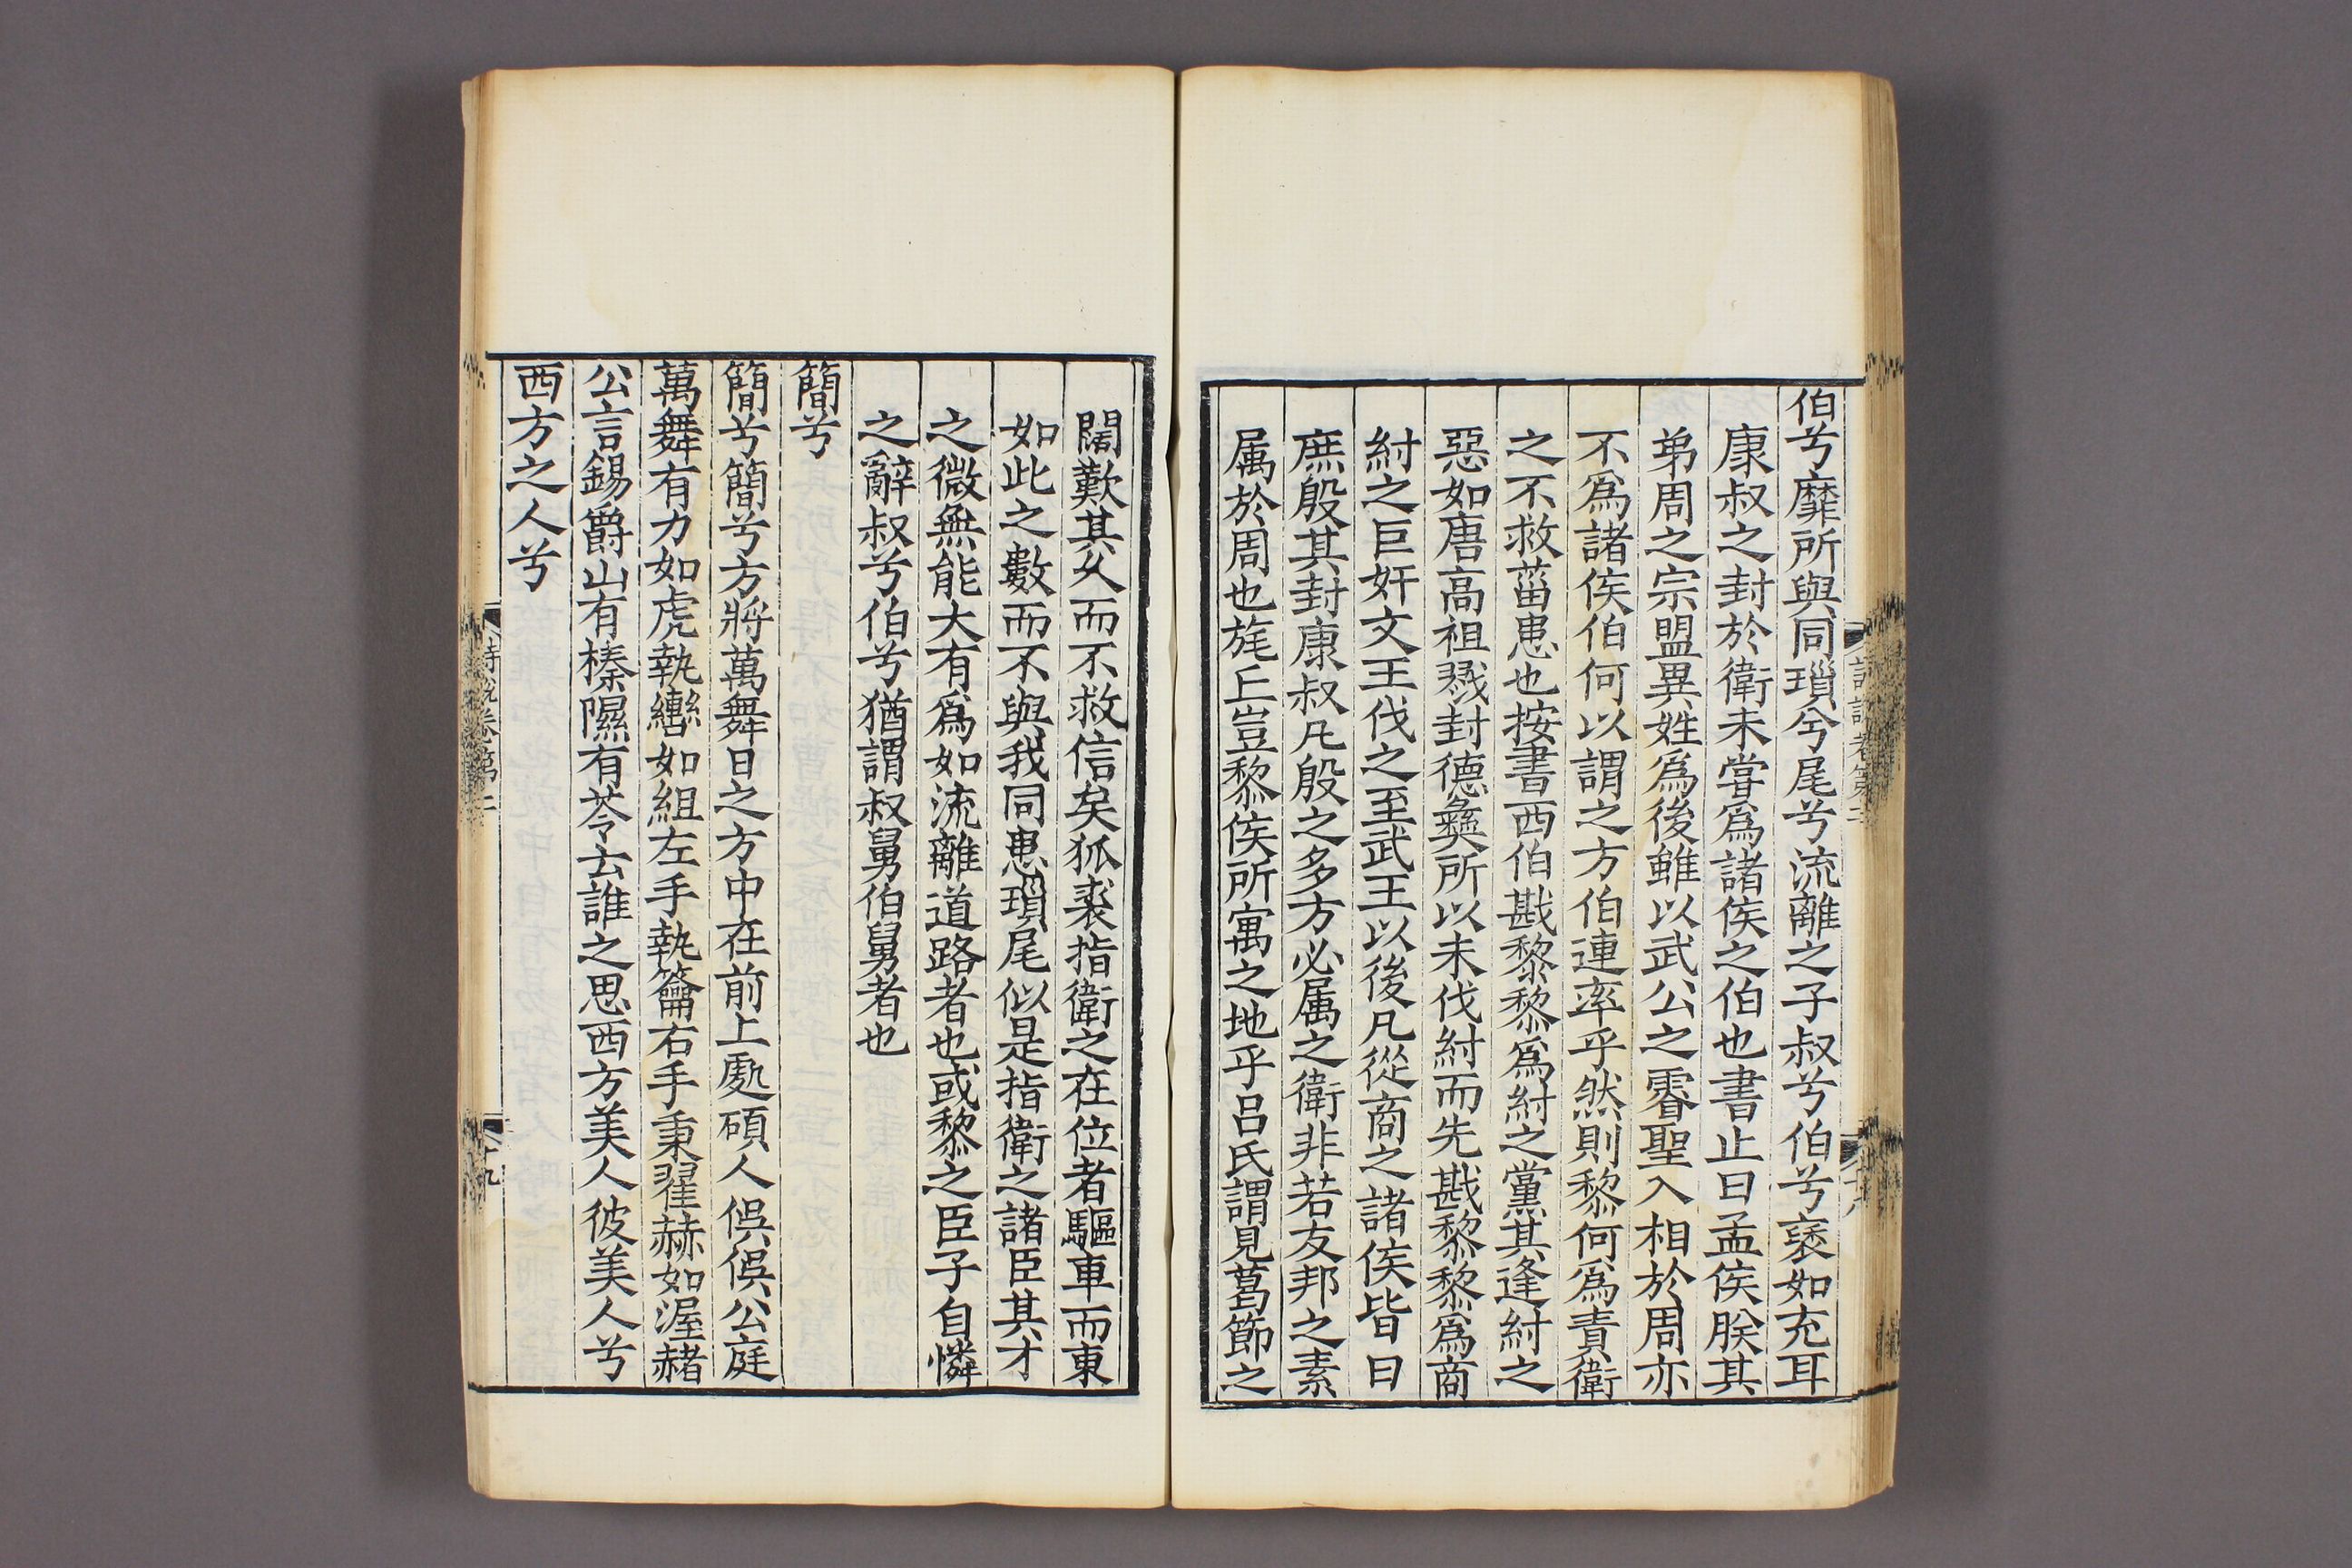 伯兮靡所與同瑣兮尾兮流離之子叔兮伯兮褎如充耳
康叔之封於衛未嘗爲諸侯之伯也書止曰孟侯朕其
弟周之宗盟異姓爲後雖以武公之睿聖入相於周亦
不爲諸侯伯何以謂之方伯連率乎然則黎何爲責衛
之不救菑患也按書西伯戡黎黎爲紂之黨其逢紂之
惡如唐高祖戮封德彝所以未伐紂而先戡黎黎爲商
紂之巨奸文王伐之至武王以後凡從商之諸侯皆曰
庶殷其封康叔凡殷之多方必属之衛非若友邦之素
属於周也旄丘豈黎侯所寓之地乎呂氏謂見葛節之
闊歎其久而不救信矣狐裘指衛之在位者驅車而東
如此之數而不與我同患瑣尾似是指衛之諸臣其才
之微無能大有爲如流離道路者也或黎之臣子自憐
之辭叔兮伯兮猶謂叔舅伯舅者也
簡兮
簡兮簡兮方將萬舞日之方中在前上處碩人俁俁公庭
萬舞有力如虎執轡如組左手執籥右手秉翟赫如渥赭
公言錫爵山有榛隰有苓云誰之思西方美人彼美人兮
西方之人兮
詩說卷第二
十九